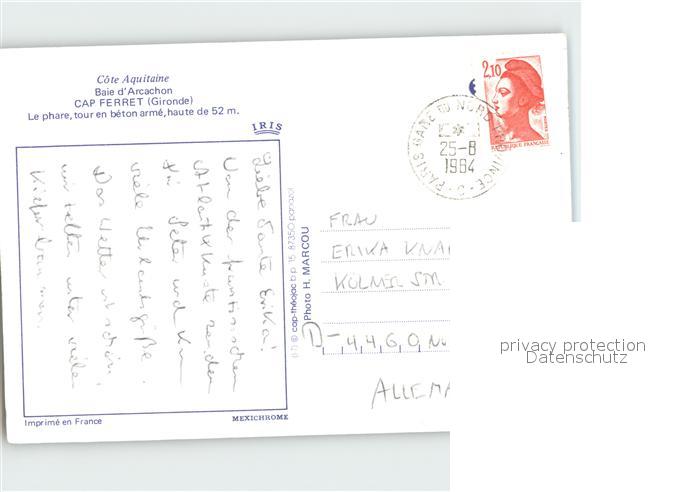 Côte Aquitaine
Baie d'Arcachon
CAP FERRET (Gironde)
Le phare, tour en béton armé, haute de 52 m.
IRIS
Liebe Tante Erika!
Von der französischen
Atlantikküste senden
Dir Peter und
viele Urlaubsgrüße.
Das Wetter ist schön,
wir zelten unter vielen
Kiefernbäumen.
Imprimé en France
MEXICHROME
© cap-théojac b.p. 15, 87350 panazol
Photo H. MARCOU
2,10
REPUBLIQUE FRANÇAISE
PARIS GARE DU NORD PROVINCE
25-8
1984
FRAU
ERIKA KNA
KÖLNER STR
D-4460 No
ALLEMA
privacy protection
Datenschutz